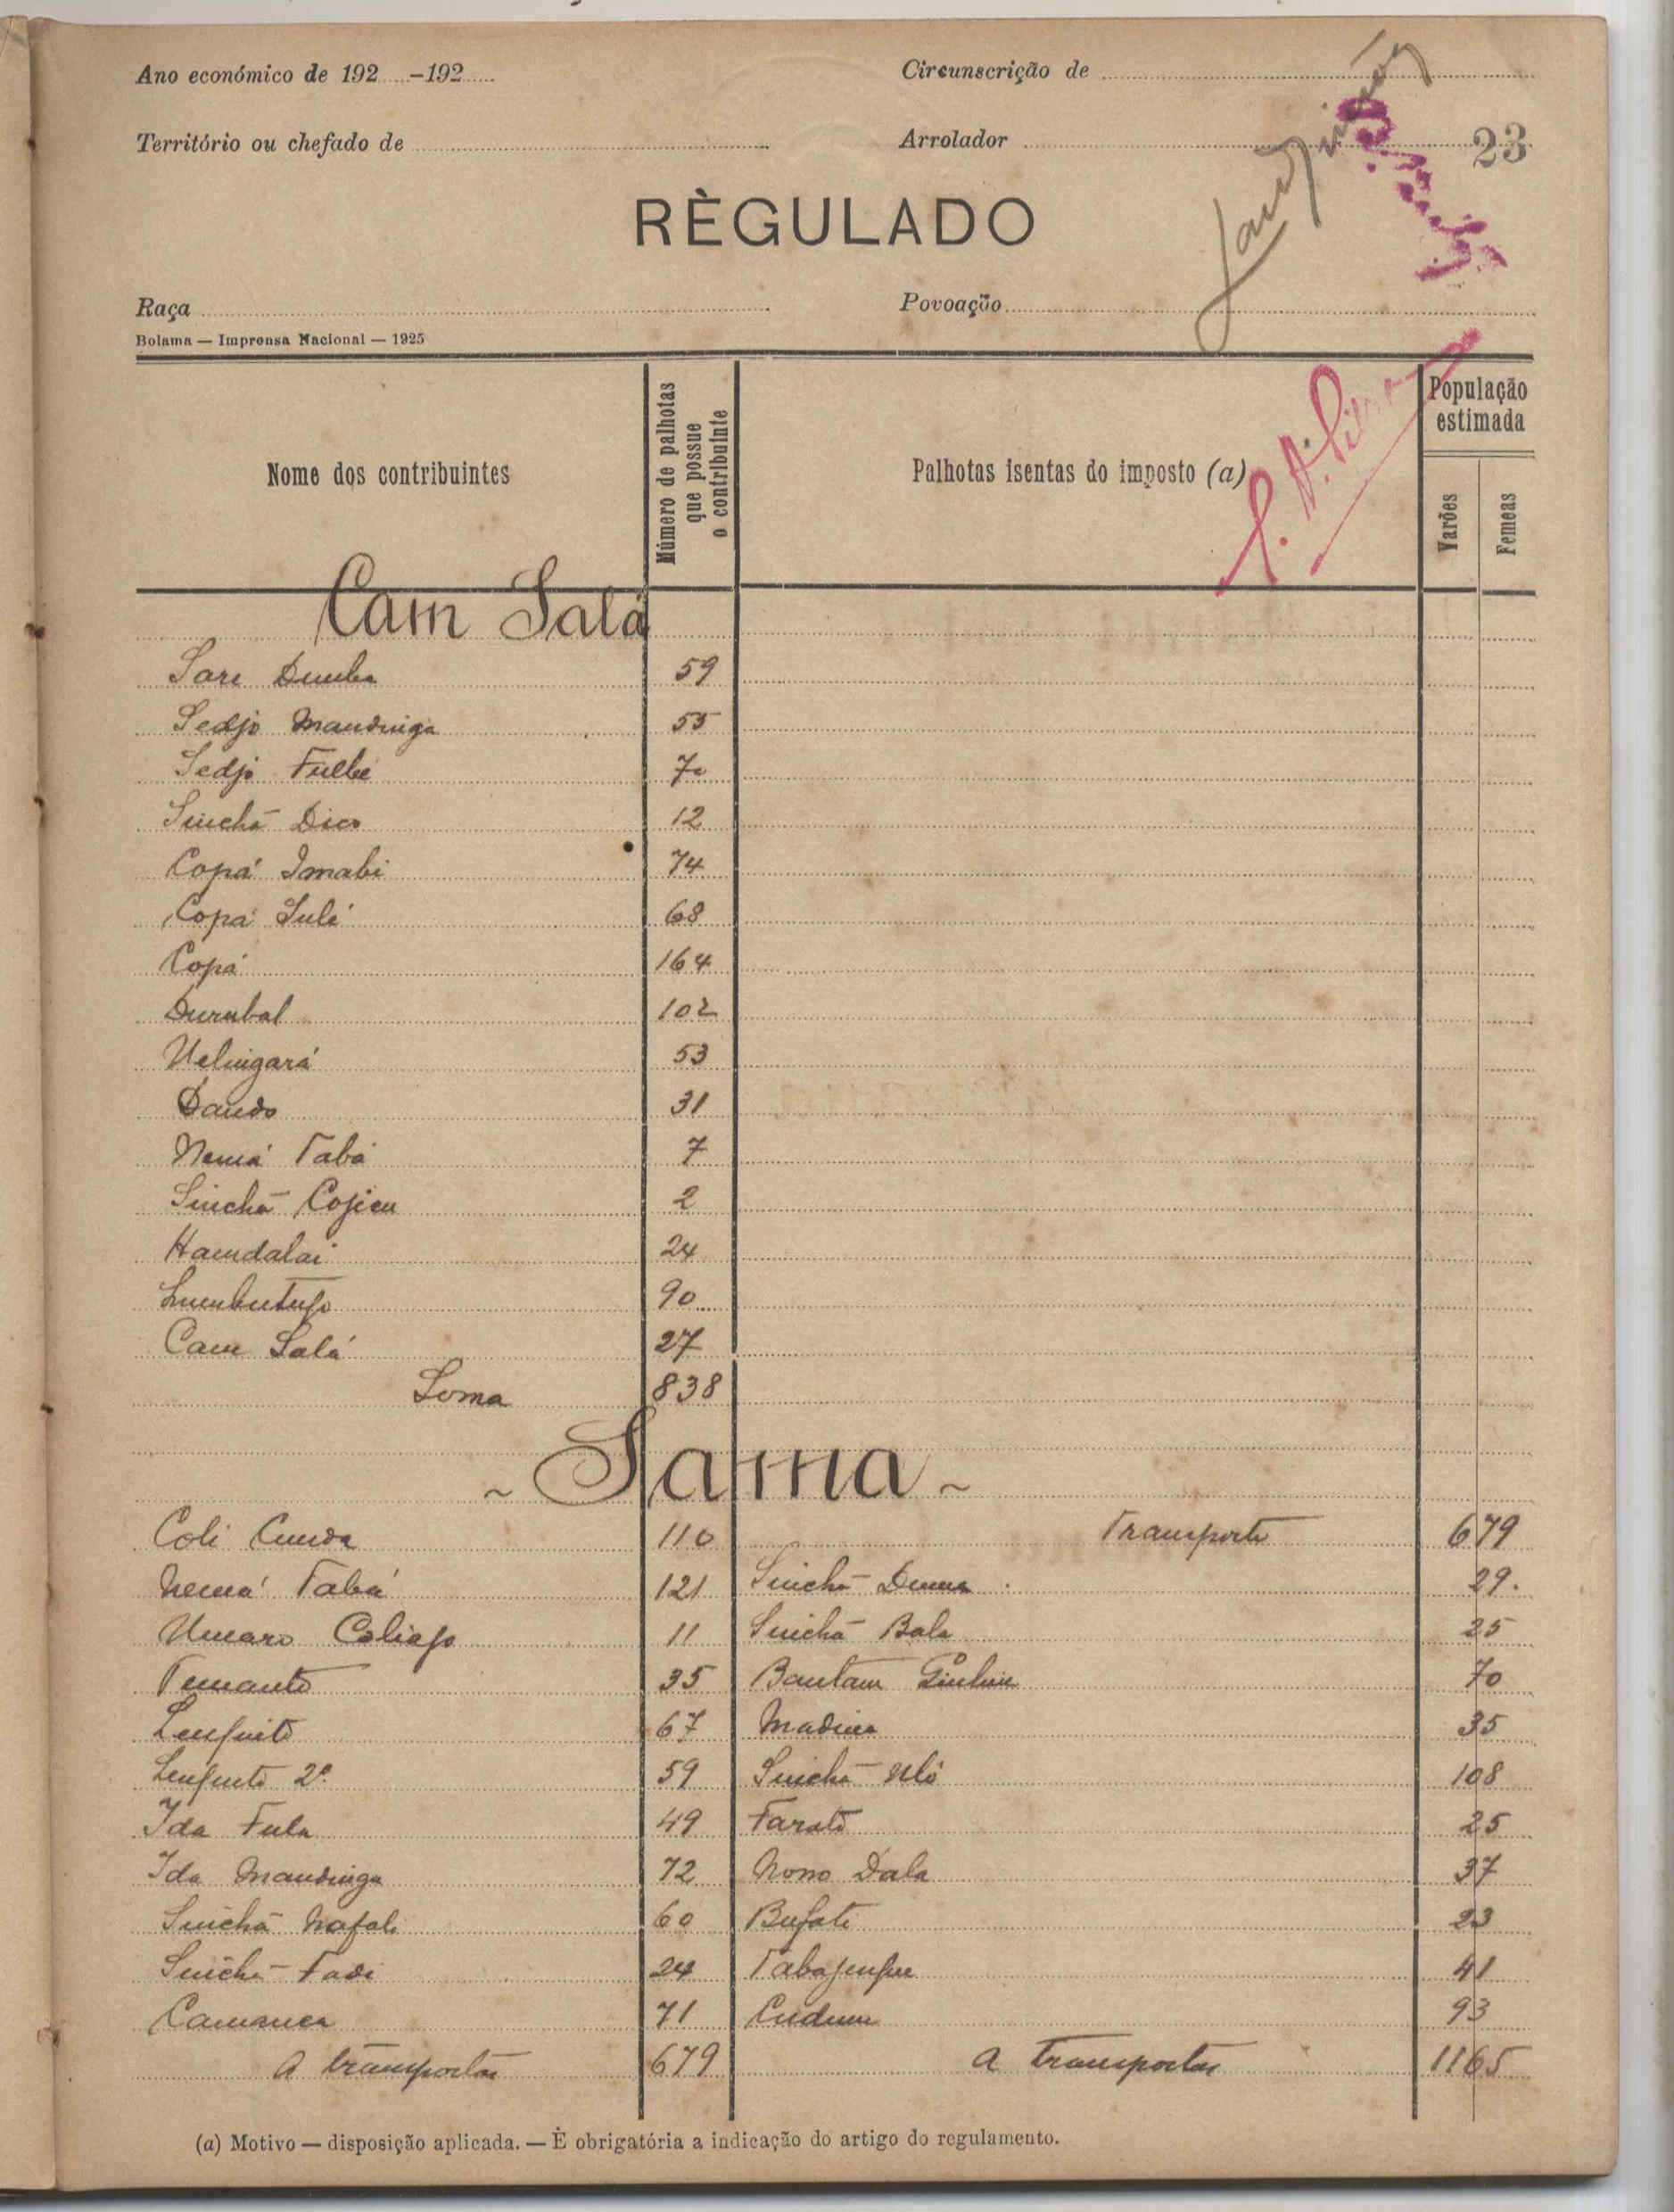 Ano económico de 192 -192
Circunscrição de
Território ou chefado de
Arrolador
23
RÈGULADO
Raça
Povoação
Bolama — Imprensa Nacional — 1925
Nome dos contribuintes
Número de palhotas que possue o contribuinte
Palhotas isentas do imposto (a)
População estimada
Varões
Femeas
Cam Salá
Sare Demba 59
Sedjo Mandinga 55
Sedjo Fulbe 70
Sinchã Dico 12
Copá Imabi 74
Copá Sulé 68
Copá 164
Durubal 102
Velingará 53
Dando 31
Nemá Tabá 7
Sinchã 2
Hamdalai 24
90
Cam Salá 27
Soma 838
~ Sama ~
Coli Cunda 110 Transporte 679
Nemá Tabá 121 Sinchã 29.
Umaro 11 Sinchã Bala 25
Temanto 35 Bantam 70
67 Madina 35
2º 59 Sinchã 108
Ida Fula 49 Farato 25
Ida Mandinga 72 Nono Dala 37
Sinchã 60 Bufate 23
Sinchã Fadi 24 41
71 93
A transportar 679 A transportar 1165
(a) Motivo — disposição aplicada. — È obrigatória a indicação do artigo do regulamento.